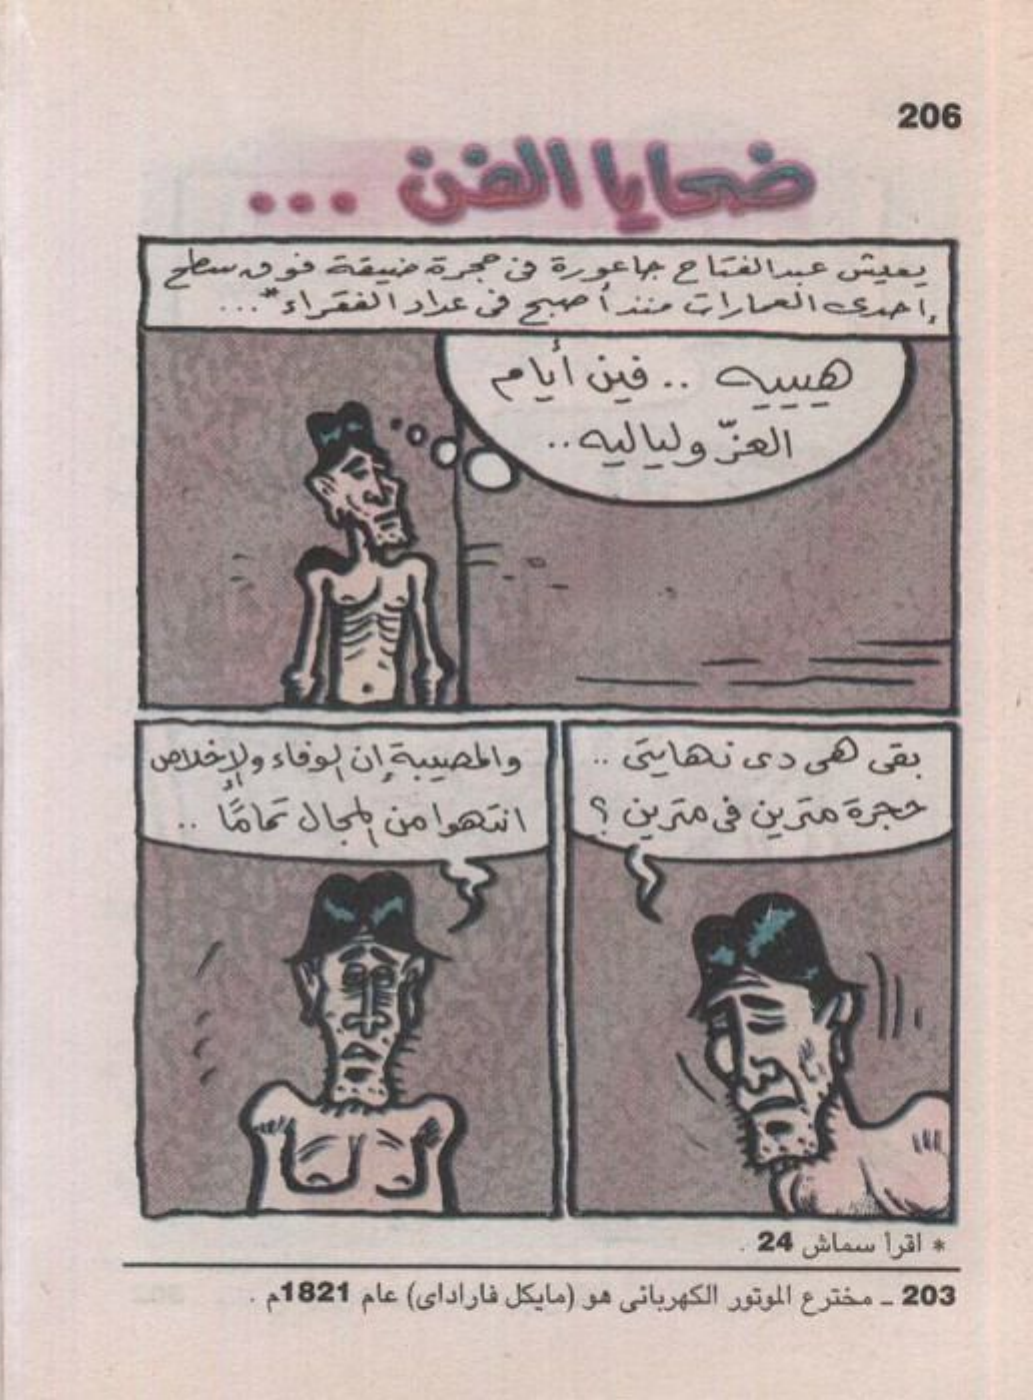 206
ضحايا الفن ...
يعيش عبدالفتاح جاعورة فى حجرة ضيقة فوق سطح
إحدى العمارات منذ أصبح فى عداد الفقراء* ...
هيييه .. فين أيام
العزّ ولياليه ..
بقى هى دى نهايتى ..
حجرة مترين فى مترين ؟
والمصيبة إن الوفاء والإخلاص
انتهوا من المجال تمامًا ..
* اقرأ سماش 24 .
203 ــ مخترع الموتور الكهربائى هو (مايكل فاراداى) عام 1821م .